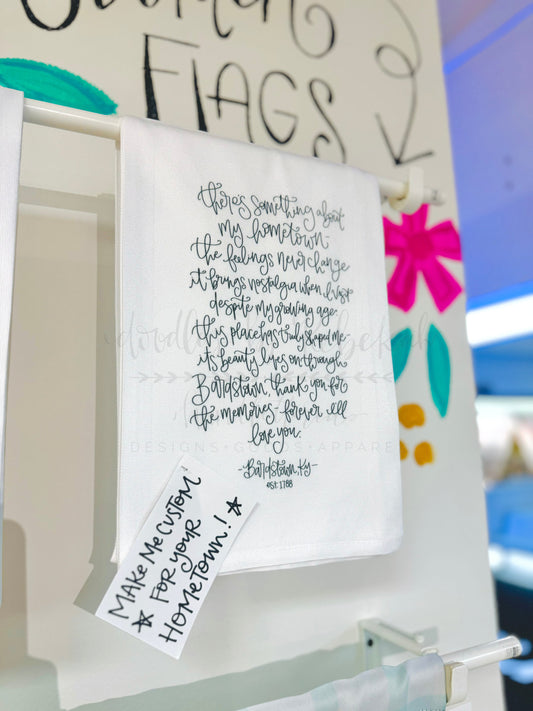 Garden
Flags
there's something about
my hometown-
the feelings never change
it brings nostalgia when I visit
despite my growing age.
this place has truly shaped me-
its beauty lives on through.
Bardstown, thank you for
the memories- forever i'll
love you.
-Bardstown, Ky-
est. 1788
MAKE ME CUSTOM
FOR YOUR
HOMETOWN!
DESIGNS+GOODS+APPAREL